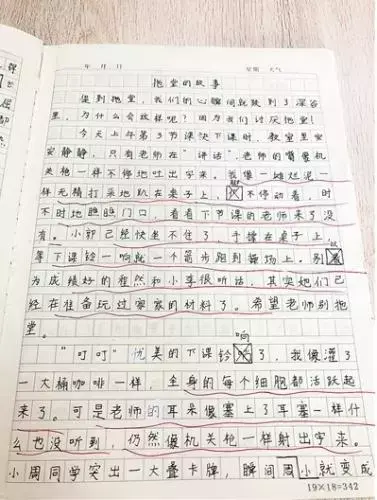 年 月 日 星期 天气
拖堂的故事
提到拖堂，我们的心瞬间就跌到了深谷
里，为什么会这样呢？因为我们讨厌拖堂！
今天上午第3节课快下课时，教室里安
安静静，只有老师在“讲话”，老师的嘴像机
关枪一样不停地吐出字来。我像一堆烂泥一
样无精打采地趴在桌子上，不停动着，时
不时地瞧瞧门口，看看下节课的老师来了没
有。小郭已经快坐不住了，手撑在桌子上，
等下课铃一响就一个箭步跑到操场上。别
为成绩好的程然和小李很听话，其实她们已
经在准备玩过家家的材料了。希望老师别拖
堂。
响
“叮叮”优美的下课铃了，我像灌了
一大桶咖啡一样，全身的每个细胞都活跃起
来了。可是老师的耳朵像塞上了耳塞一样什
么也没听到，仍然像机关枪一样射出字来。
小周同学突出一大叠卡牌，瞬间周小就变成
19×18=342